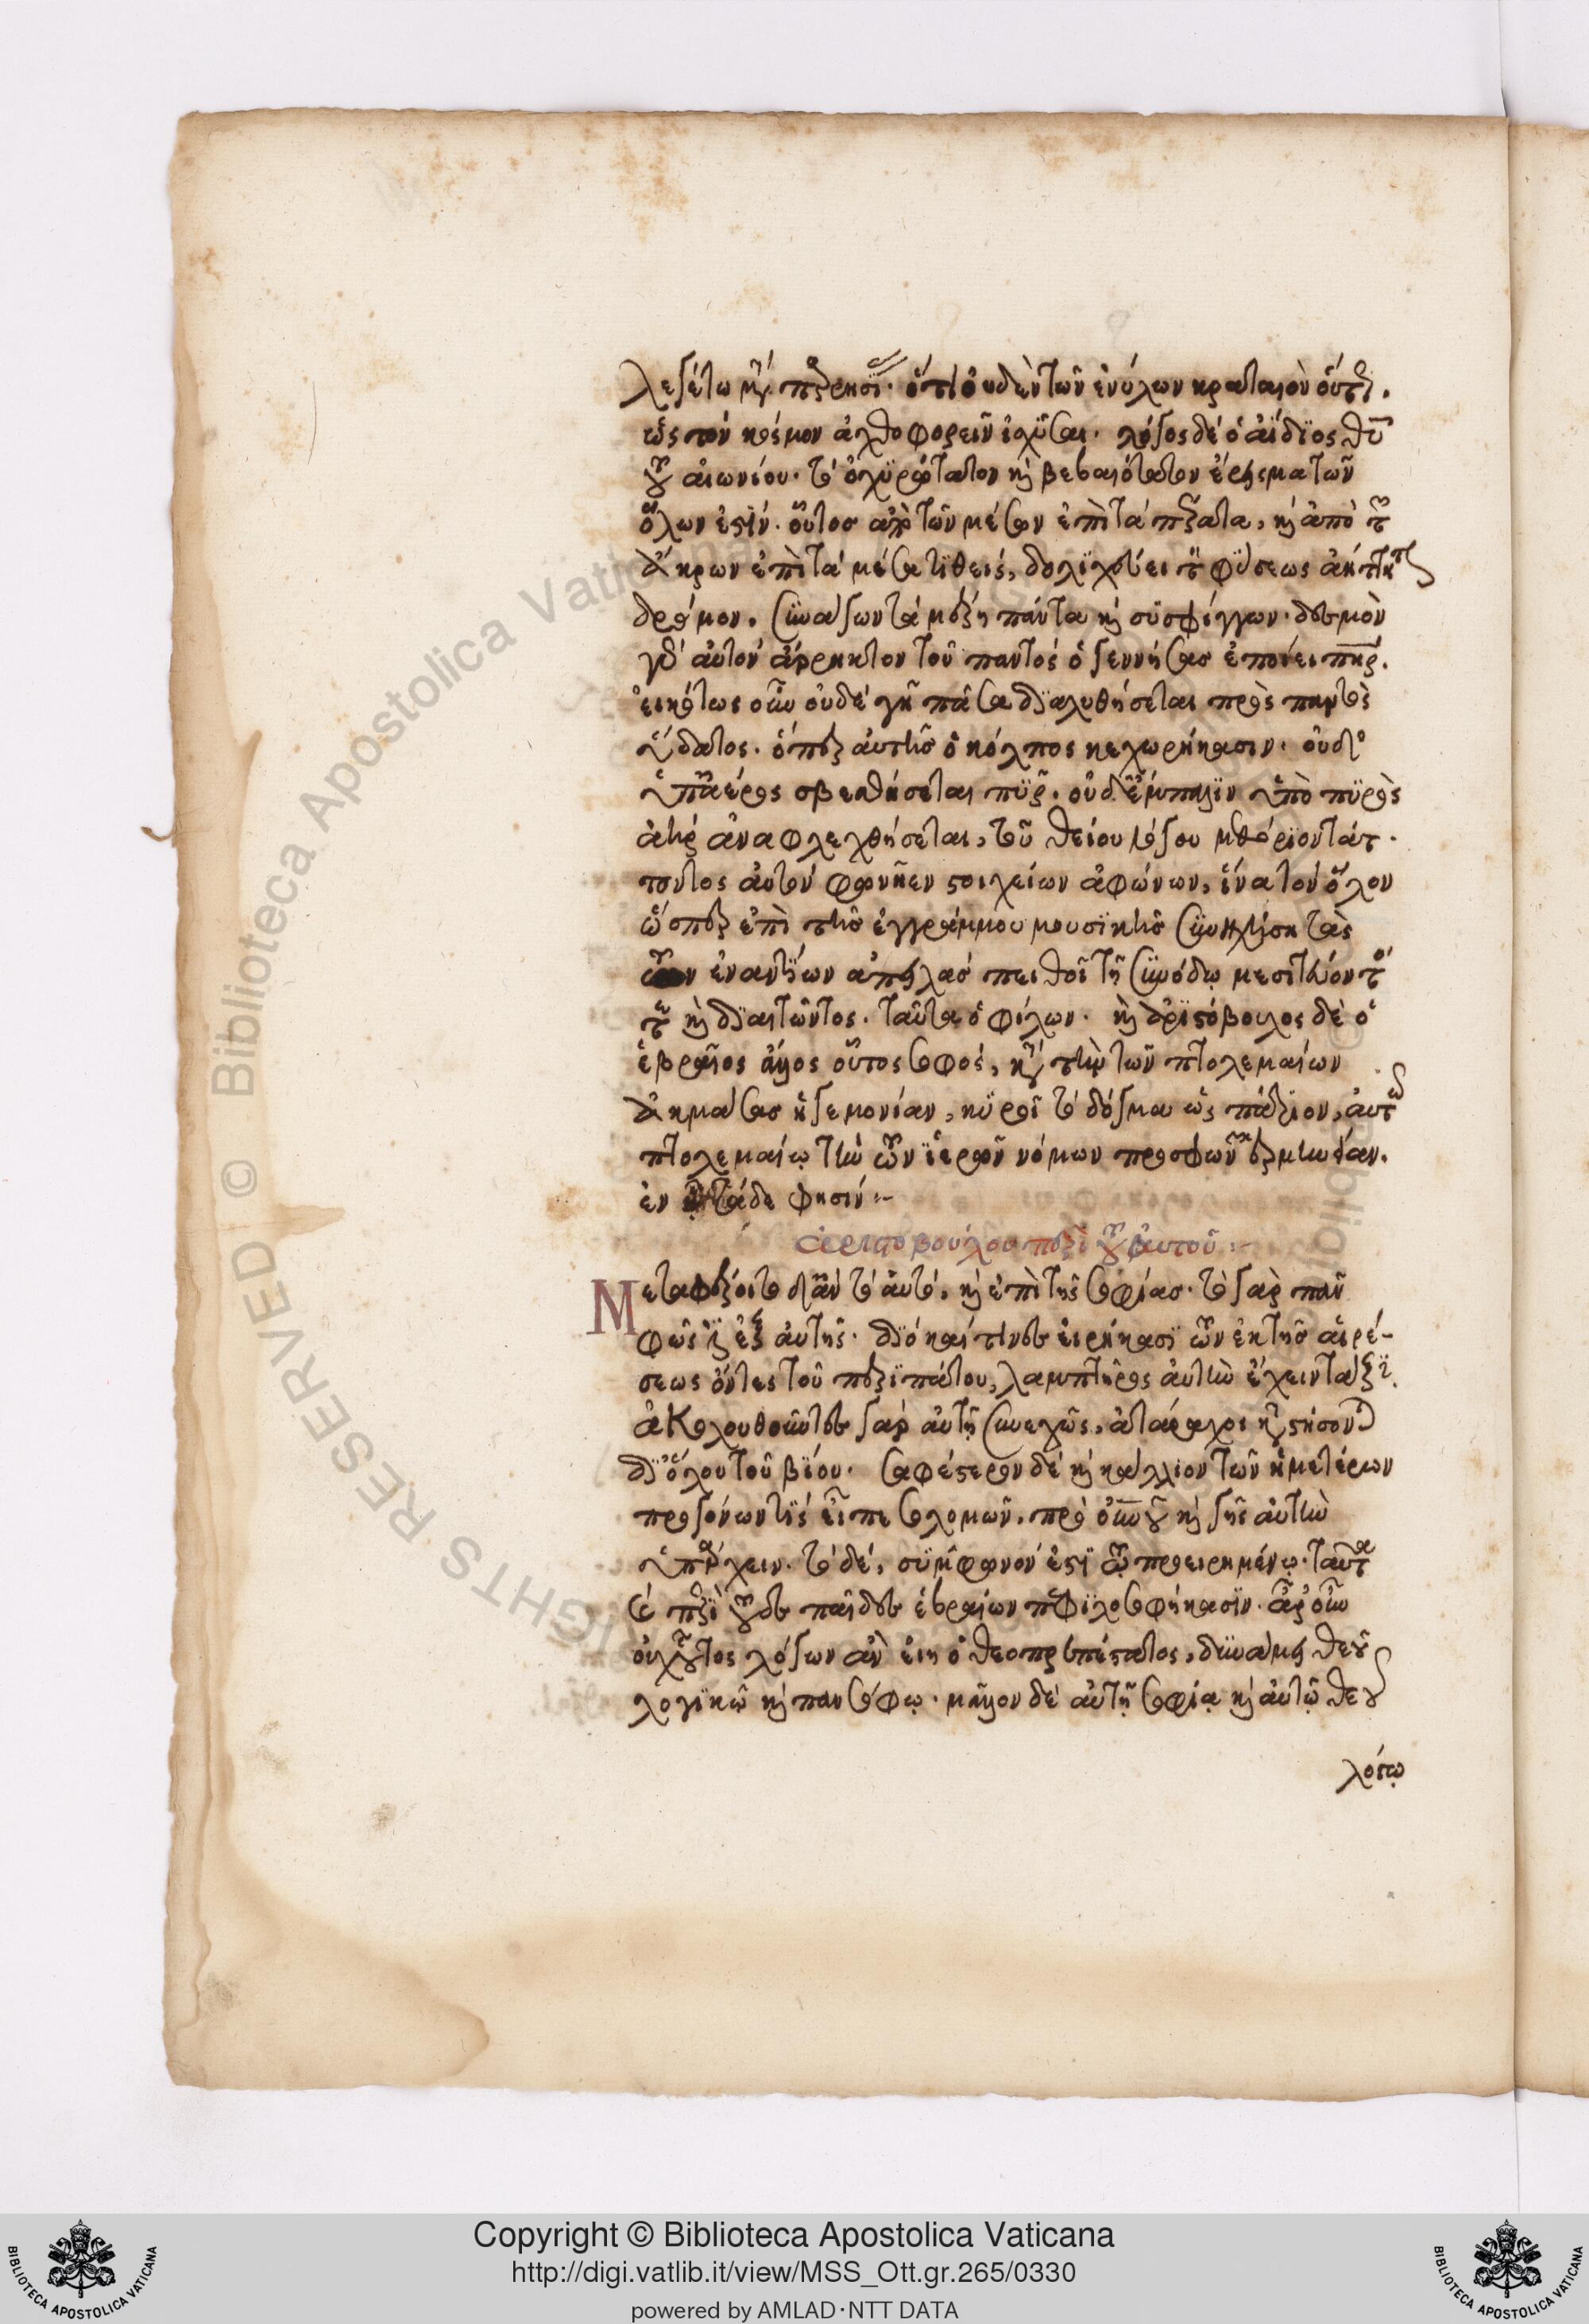 λεγέτω κατὰ παρρησίαν ὅτι οὐδὲν τῶν ἐνύλων κραταιὸν οὕτως
ὡς τὸν κόσμον ἀχθοφορεῖν ἰσχῦσαι. λόγος δὲ ὁ ἀΐδιος θεοῦ
τοῦ αἰωνίου. τὸ ὀχυρώτατον καὶ βεβαιότατον ἔρεισμα τῶν
ὅλων ἐστίν. οὗτος ἀπὸ τῶν μέσων ἐπὶ τὰ πέρατα, καὶ ἀπὸ τῶν
ἄκρων ἐπὶ τὰ μέσα ταθεὶς, δολιχεύει τὸν φύσεως ἀήττητον
δρόμον. συνάγων τὰ μέρη πάντα καὶ συσφίγγων. δεσμὸν
γὰρ αὐτὸν ἄρρηκτον τοῦ παντὸς ὁ γεννήσας ἐποίει πατήρ.
εἰκότως οὖν οὐδὲ γῆ πᾶσα διαλυθήσεται πρὸς παντὸς
ὕδατος. ὅπερ αὐτῆς ὁ κόλπος κεχωρήκασιν. οὐδ'
ὑπ' ἀέρος σβεσθήσεται πῦρ. οὐδ' ἔμπαλιν ὑπὸ πυρὸς
ἀὴρ ἀναφλεχθήσεται, τοῦ θείου λόγου μεθόριον τάτ-
τοντος αὐτὸν φωνῆεν στοιχείων ἀφώνων, ἵνα τὸ ὅλον
ὥσπερ ἐπὶ τῆς ἐγγράμμου μουσικῆς συνηχήσῃ τὰς
τῶν ἐναντίων ἀπειλὰς πειθοῖ τῇ συνόδῳ μεσιτεύοντός
τε καὶ διαιτῶντος. ταῦτα ὁ φίλων. καὶ ἀριστόβουλος δὲ ὁ
ἑβραῖος ἄλλος οὗτος σοφὸς, κατὰ τὴν τῶν πτολεμαίων
ἀκμάσας ἡγεμονίαν, κυροῖ τὸ δόγμα ὡς πάτριον, αὐτῷ
πτολεμαίῳ τὴν τῶν ἱερῶν νόμων προσφωνῶν ἑρμηνείαν.
ἐν ᾗ τάδε φησίν:-
ἀριστοβούλου περὶ τοῦ αὐτοῦ:-
Μεταφέροιτο δ' ἂν τὸ αὐτὸ, καὶ ἐπὶ τῆς σοφίας. τὸ γὰρ πᾶν
φῶς ἐστιν ἐξ αὐτῆς. διὸ καί τινες εἰρήκασι τῶν ἐκ τῆς αἱρέ-
σεως ὄντες τοῦ περιπάτου, λαμπτῆρος αὐτὴν ἔχειν τάξιν.
ἀκολουθοῦντες γὰρ αὐτῇ συνεχῶς, ἀτάραχοι καταστήσονται
δι' ὅλου τοῦ βίου. σαφέστερον δὲ καὶ κάλλιον τῶν ἡμετέρων
προγόνων τις εἶπε σολομῶν, πρὸ οὐρανοῦ καὶ γῆς αὐτὴν
ὑπάρχειν. τὸ δὲ, σύμφωνόν ἐστι τῷ προειρημένῳ. ταῦτα
περὶ τοῦδε παῖδες ἑβραίων πεφιλοσοφήκασιν. ἆρ' οὖν
οὐχ οὗτος λόγων ἂν εἴη ὁ θεοπρεπέστατος, δυνάμει θεοῦ
λογικῇ καὶ πανσόφῳ. μᾶλλον δὲ αὐτῇ σοφίᾳ καὶ αὐτῷ θεοῦ
λόγῳ
Copyright © Biblioteca Apostolica Vaticana
http://digi.vatlib.it/view/MSS_Ott.gr.265/0330
powered by AMLAD·NTT DATA